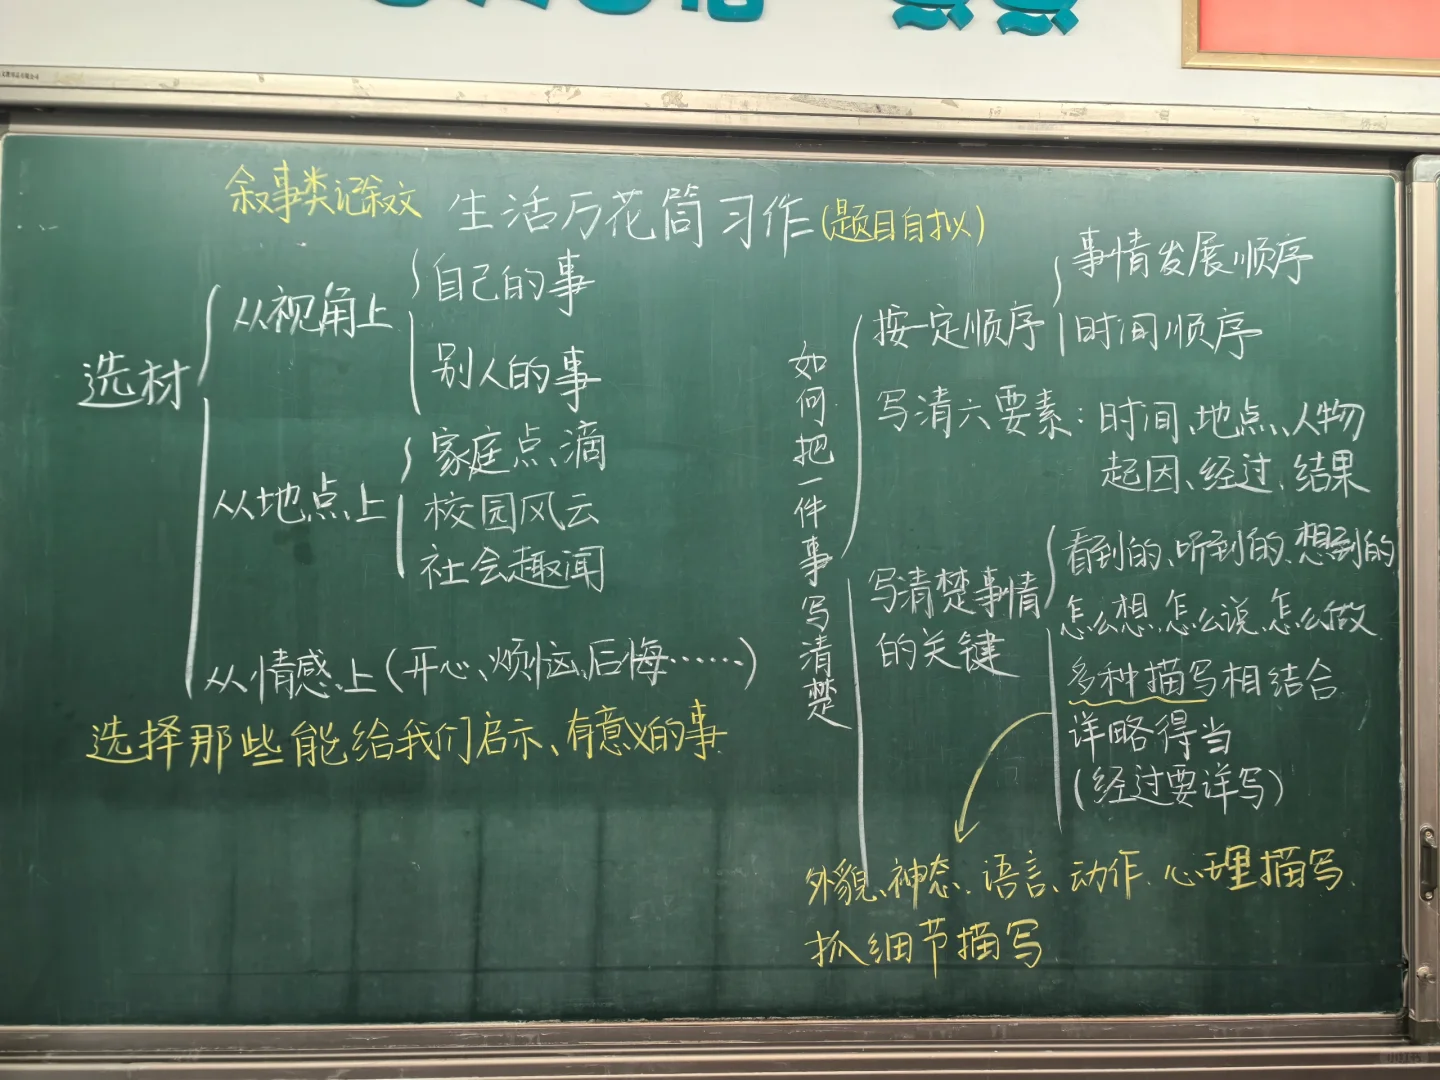 叙事类记叙文 生活万花筒习作(题目自拟)
选材
从视角上
自己的事
别人的事
从地点上
家庭点滴
校园风云
社会趣闻
从情感上(开心、烦恼、后悔……)
选择那些能给我们启示、有意义的事
如何把一件事写清楚
按一定顺序
事情发展顺序
时间顺序
写清六要素:时间、地点、人物
起因、经过、结果
写清楚事情
的关键
看到的、听到的、想到的
怎么想、怎么说、怎么做
多种描写相结合
详略得当
(经过要详写)
外貌、神态、语言、动作、心理描写
抓细节描写